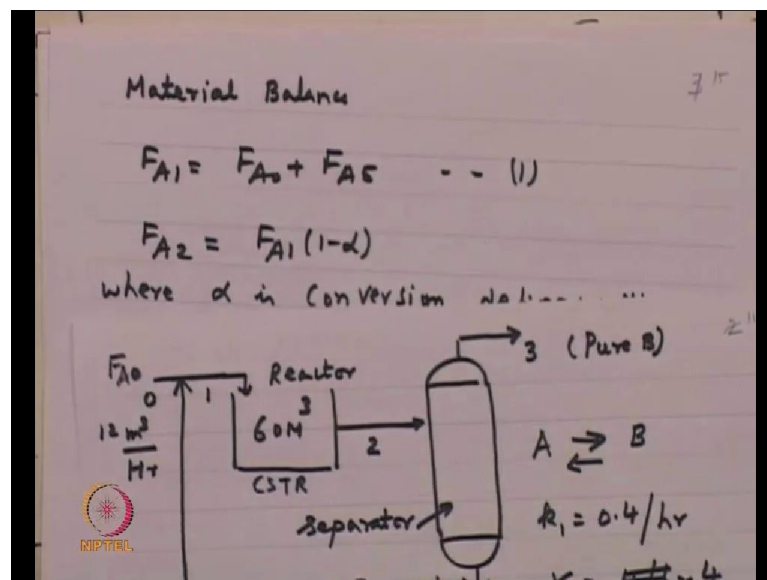 Material Balance
F_A1 = F_A0 + F_A5 -- (1)
F_A2 = F_A1 (1-α)
where α is Conversion
F_A0 Reactor
3 (Pure B)
0 1
12 m³
Hr
60M³
2
CSTR
A ⇌ B
separator
k₁ = 0.4/hr
NPTEL